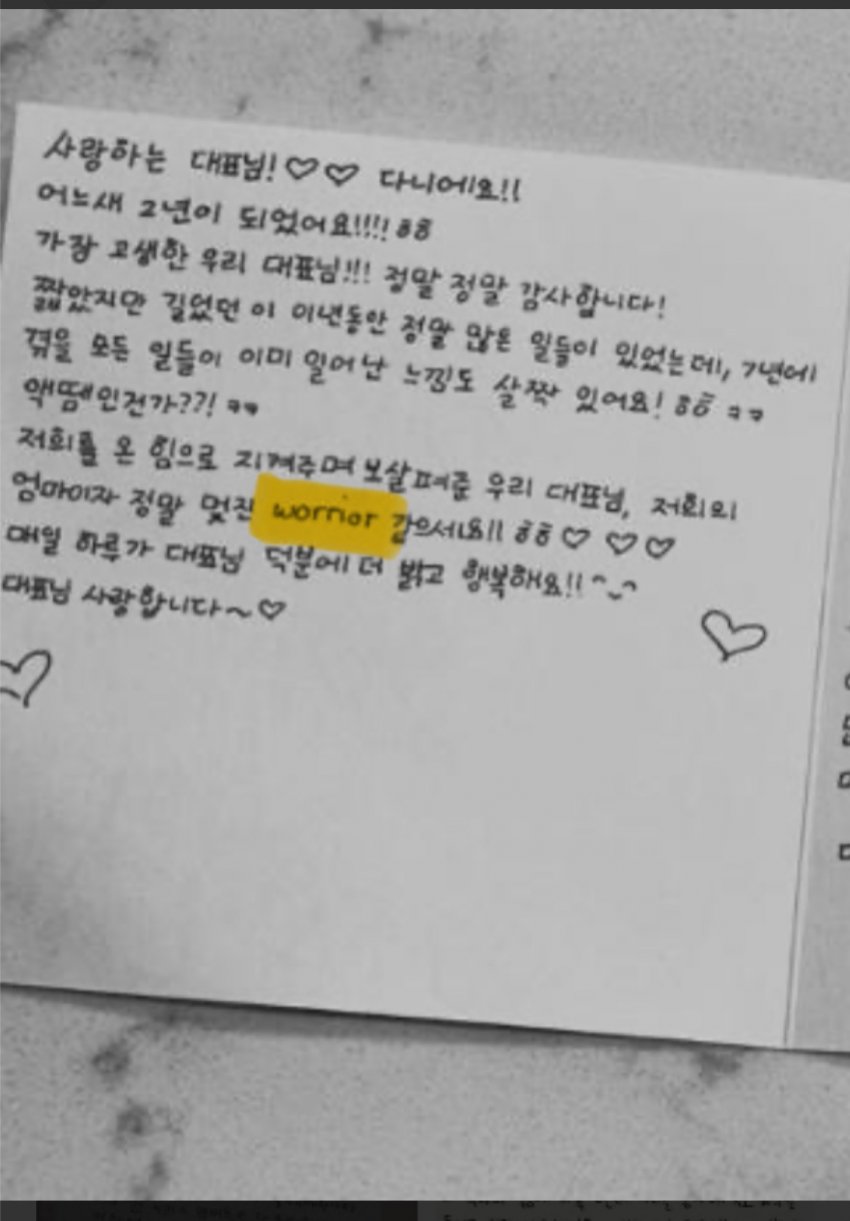 사랑하는 대표님!♡♡ 다니에요!!
어느새 2년이 되었어요!!!! ㅎㅎ
가장 고생한 우리 대표님!!! 정말 정말 감사합니다!
짧았지만 길었던 이 이년동안 정말 많은 일들이 있었는데, 7년에
겪을 모든 일들이 이미 일어난 느낌도 살짝 있어요! ㅎㅎ ㅋㅋ
액땜인건가??! ㅋㅋ
저희를 온 힘으로 지켜주며 보살펴준 우리 대표님, 저희의
엄마이자 정말 멋진 worrior 같으세요!! ㅎㅎ ♡ ♡ ♡
매일 하루가 대표님 덕분에 더 밝고 행복해요!! ^‿^
대표님 사랑합니다~♡